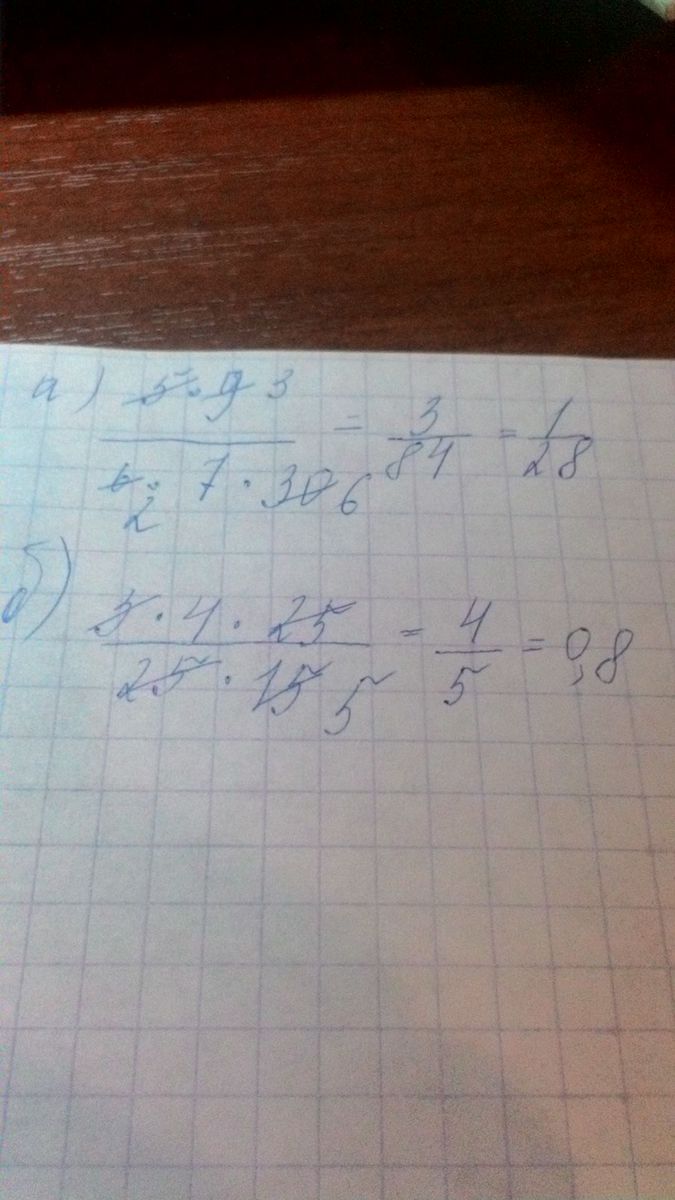 а) 5 · 9 3 / 6 2 · 7 · 30 6 = 3/84 = 1/28
б) 3 · 4 · 25 / 25 · 15 5 = 4/5 = 0,8